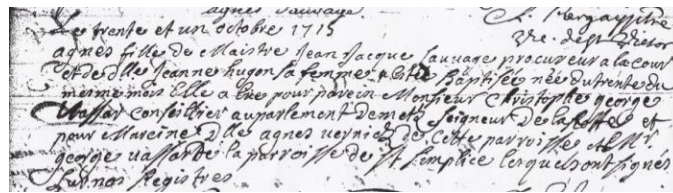 agnes Sauvage
Le trente et un octobre 1715
agnes fille de Maistre Jean Jacque Sauvage procureur a la cour
et de dlle Jeanne hugon sa femme a esté Baptisée née du trente du
mesme mois Elle a eu pour parein Monsieur Christophe george
Vassar conseillier au parlement de mets Seigneur de et
pour Mareine dlle agnes de cette parroisse et Mr
george vassart de la parroisse de st Simplice lesquels ont signés
Sur nos Registres